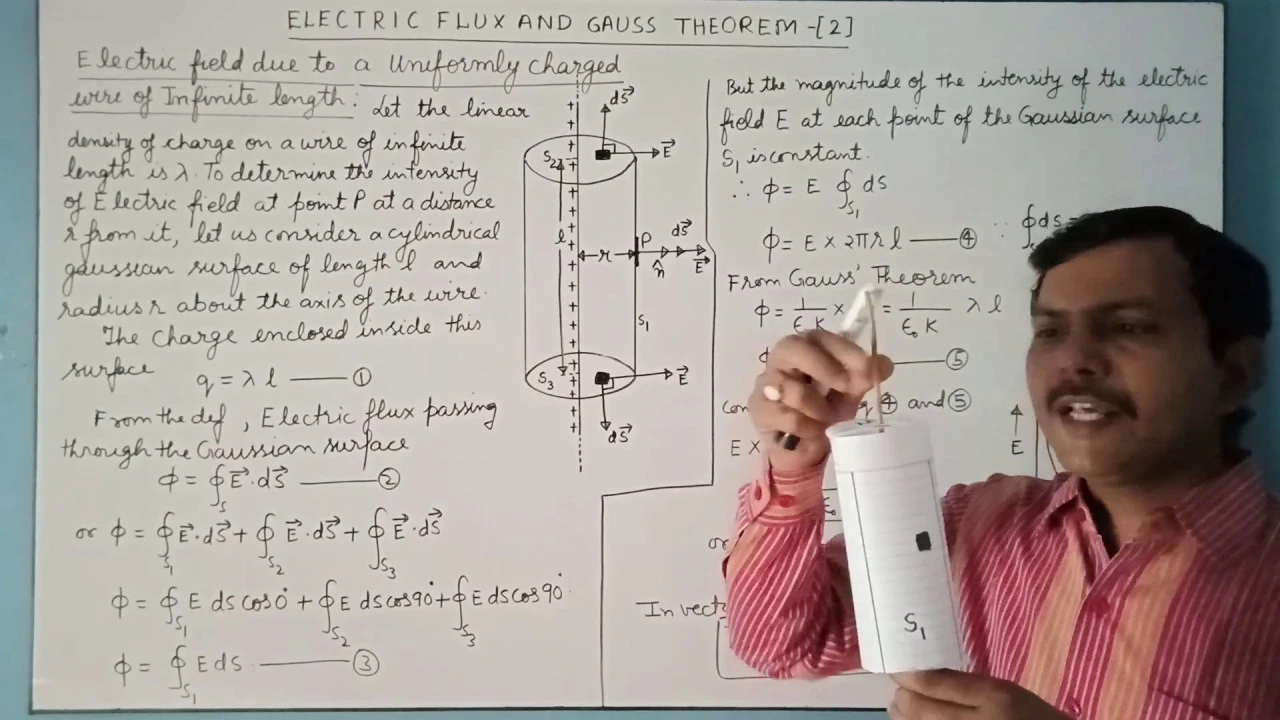 ELECTRIC FLUX AND GAUSS THEOREM -[2]
Electric field due to a Uniformly charged
wire of Infinite length: Let the linear
density of charge on a wire of infinite
length is λ. To determine the intensity
of Electric field at point P at a distance
r from it, let us consider a cylindrical
gaussian surface of length l and
radius r about the axis of the wire.
The charge enclosed inside this
surface q = λ l —— ①
From the def, Electric flux passing
through the Gaussian surface
ϕ = ∮_S E⃗·dS⃗ —— ②
or ϕ = ∮_S₁ E⃗·dS⃗ + ∮_S₂ E⃗·dS⃗ + ∮_S₃ E⃗·dS⃗
ϕ = ∮_S₁ E ds cos0° + ∮_S₂ E ds cos90° + ∮_S₃ E ds cos90°
ϕ = ∮_S₁ E ds —— ③
dS⃗
S₂
E⃗
l
r
P
dS⃗
n̂
E⃗
S₁
S₃
E⃗
dS⃗
But the magnitude of the intensity of the electric
field E at each point of the Gaussian surface
S₁ is constant.
∴ ϕ = E ∮_S₁ ds
ϕ = E × 2πr l —— ④ ∵ ∮ ds =
From Gauss' Theorem
ϕ = 1/ϵ₀K × = 1/ϵ₀K λ l
⑤
④ and ⑤
E ×
E
or
In
S₁